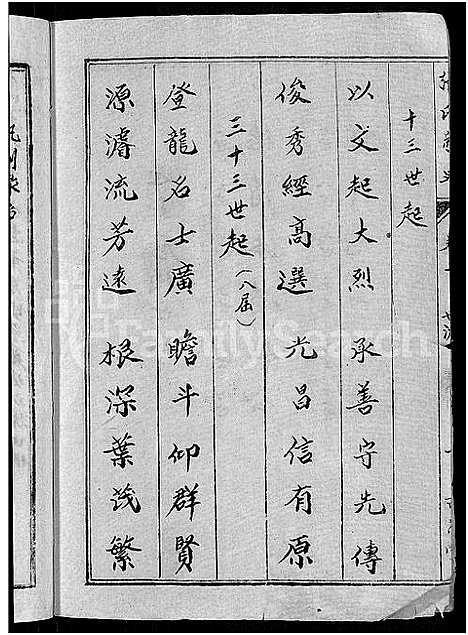 十三世起
以文起大烈 承善守先傳
俊秀經高選 光昌信有原
三十三世起（八届）
登龍名士廣 瞻斗仰群賢
源濬流芳遠 根深葉茂繁
FamilySearch